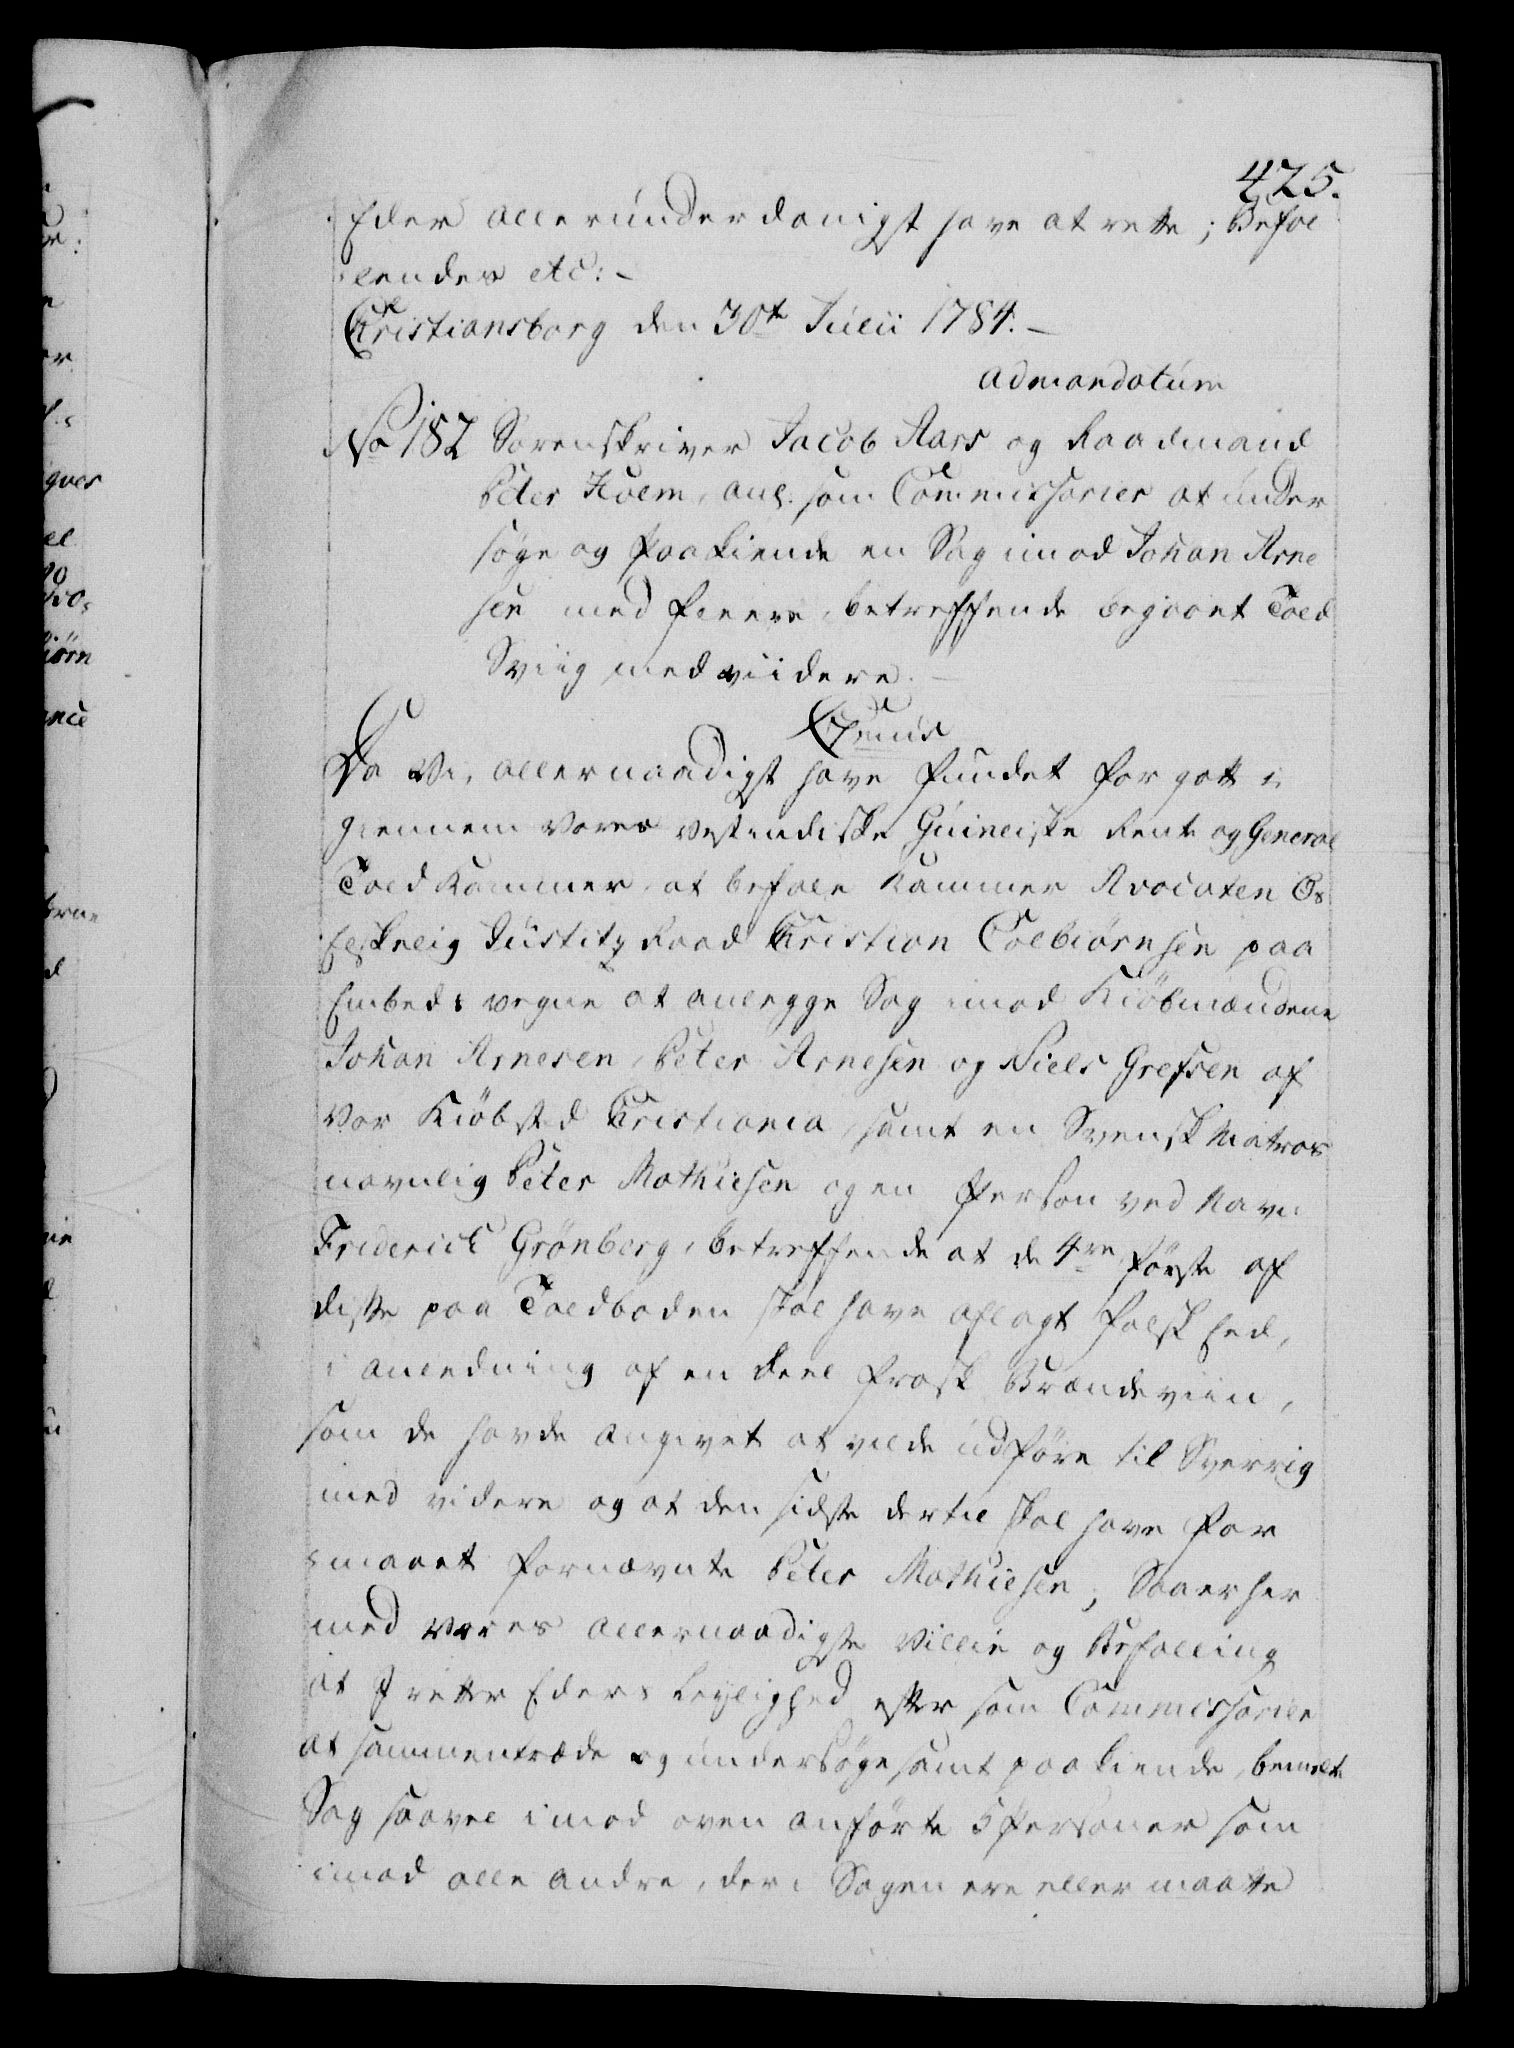 425.
Eder allerunderdanigst have at rette; Befal
lendes etc: –
Christiansborg den 30te Julii 1784. –
admandatum
No 182 Sorenskriver Jacob Aars og Raadmand
Peter Holm, anl. som Commissarier at under
søge og paakiende en Sag imod Johan Arne
sen med fleere, betreffende begaaet Told
Sviig med viidere. –
C7mus
Da Vi, allernaadigst have fundet for gott i
giennem Vores Vestindiske Guineiske Rente og General
Told Kammer, at befale Kammer Avocaten Os
Elskelig Justitz Raad Christian Colbiørnsen paa
Embeds vegne at anlegge Sag imod Kiøbmændene
Johan Arnesen, Peter Arnesen og Niels Grefsen af
Vor Kiøbsted Christiania, samt en Svensk Matros
navnlig Peter Mathiesen og en Person ved Navn
Friderich Grønberg, betreffende at de 4re første af
disse paa Toldboden skal have aflagt falsk Eed,
i anledning af en deel fransk Brændeviin,
som de havde angivet at vilde udføre til Sverrig
med videre og at den sidste dertil skal have for
maaet fornævnte Peter Mathiesen; Saa er her
med Vores allernaadigste Villie og Befalling
at I efter Eders Leylighed som Commissarier
at sammentræde og undersøge samt paakiende, bemelte
Sag saavel imod oven anførte 5 Personer som
imod alle andre, der i Sagen ere eller maatte